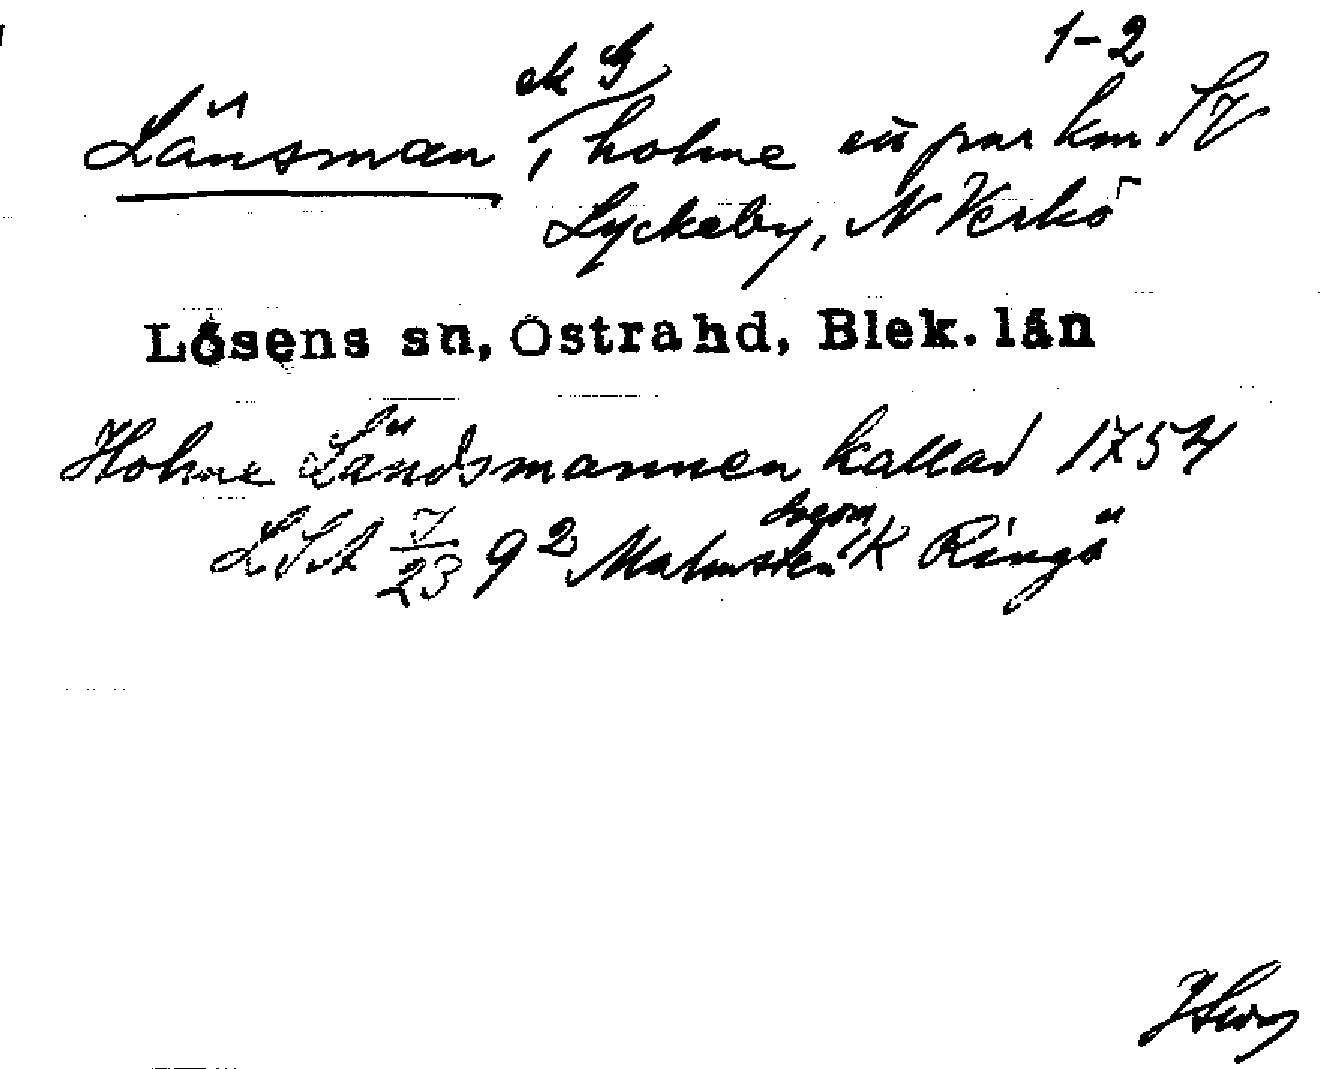 1-2
Länsman, holme ett par km SV
Lyckeby, N Verkö
Lösens sn, Östra hd, Blek. län
Holme Ländsmannen kallad 1754
LSA 7/23 9² Malmsten K Ringö